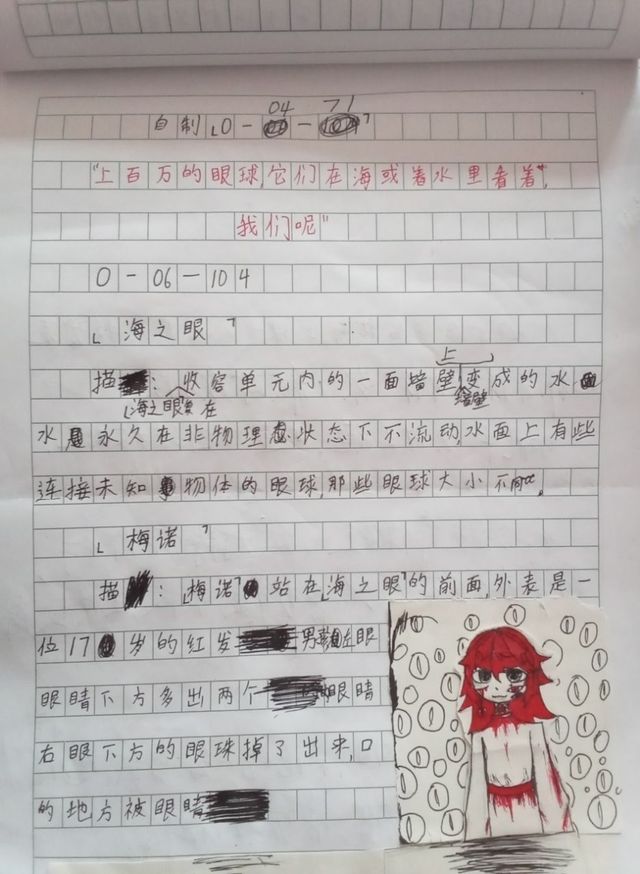 04 71
自制「O-
-
」
"上百万的眼球,它们在海或着水里看着",
我们呢"
O-06-104
「海之眼」
上
描 : 收容单元内的一面墙壁变成的水
「海之眼」在 墙壁
水 永久在非物理态状态下不流动,水面上有些
连接未知 物体的眼球,那些眼球大小不同。
「梅诺」
描 : 「梅诺」 站在「海之眼」的前面,外表是一
位17 岁的红发 男 左眼
眼睛下方多出两个 眼睛
右眼下方的眼珠掉了出来,口
的地方被眼睛